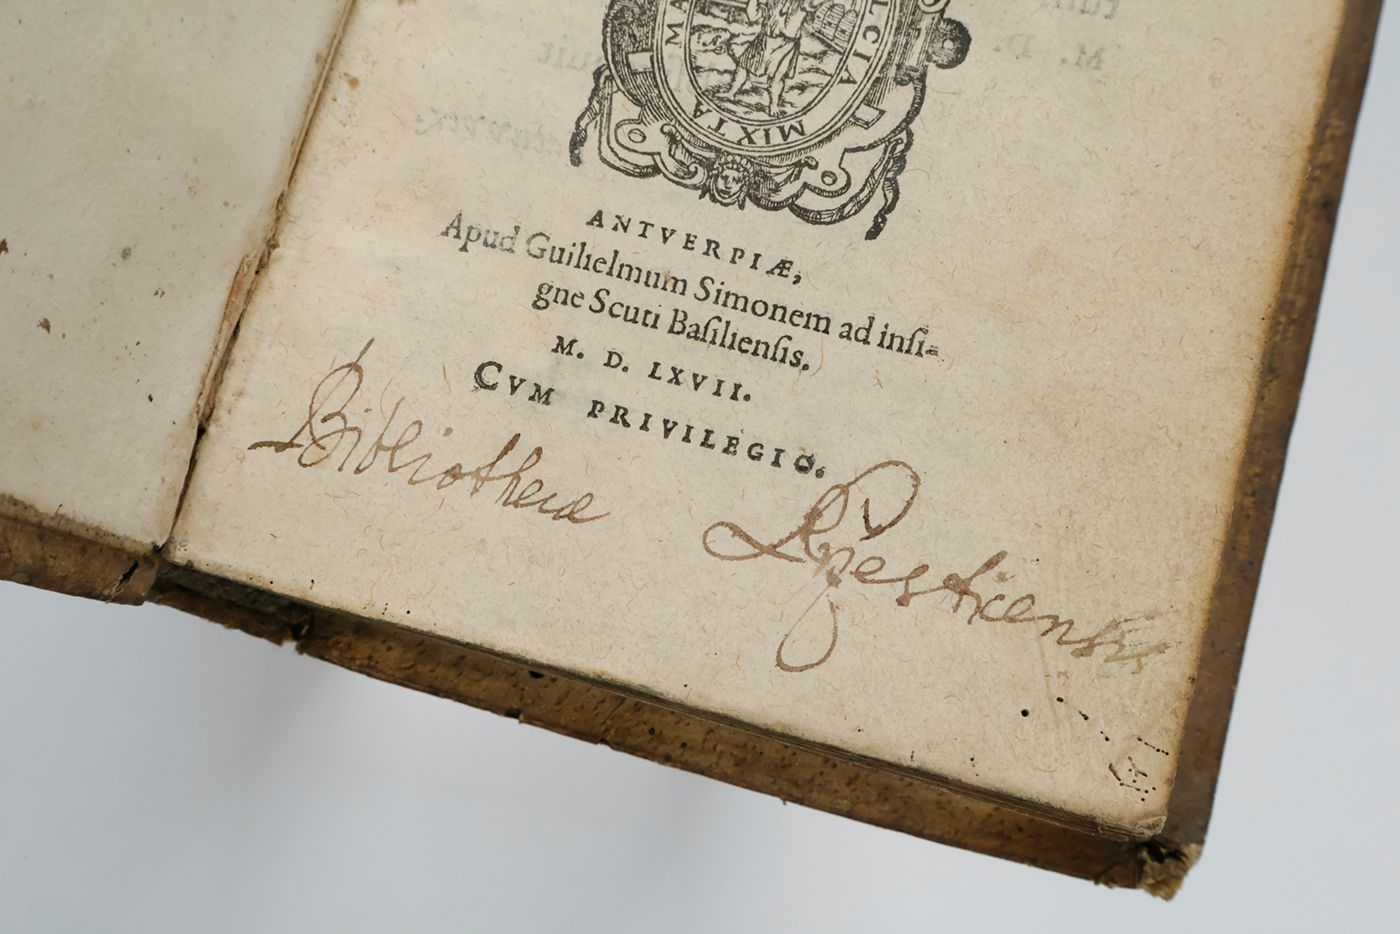 MA
LCIA
MIXTA
ANTVERPIÆ,
Apud Guilielmum Simonem ad inſi-
gne Scuti Baſilienſis.
M. D. LXVII.
CVM PRIVILEGIO.
Bibliothecæ